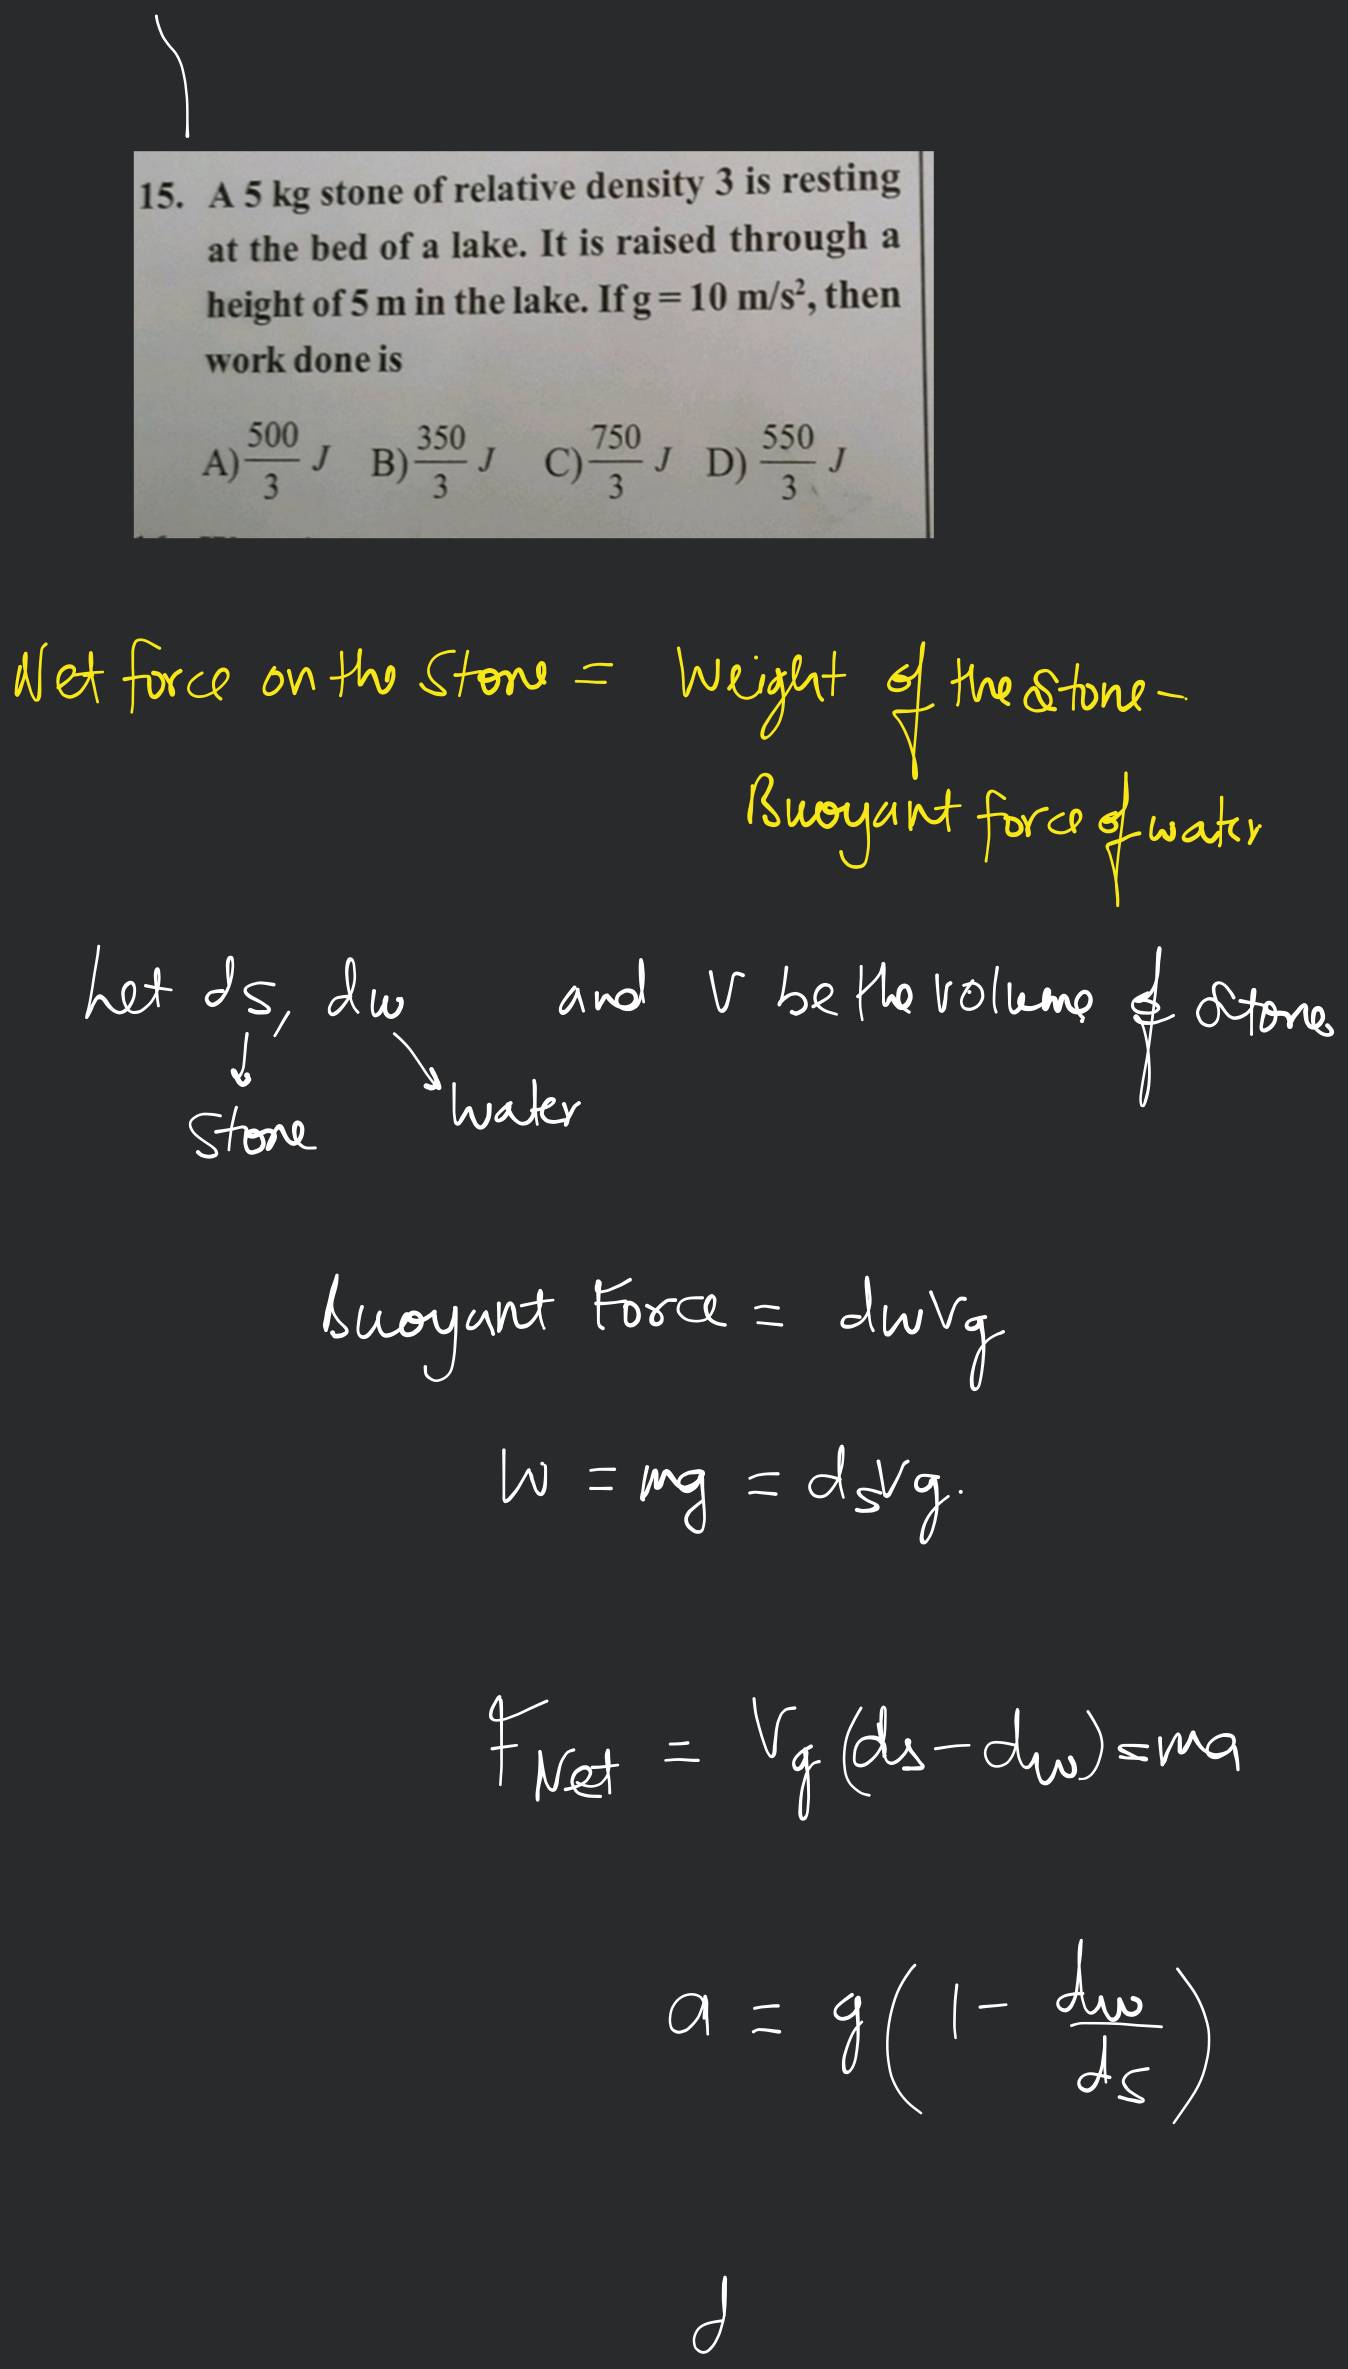 15. A 5 kg stone of relative density 3 is resting
at the bed of a lake. It is raised through a
height of 5 m in the lake. If g = 10 m/s², then
work done is
A) 500/3 J B) 350/3 J C) 750/3 J D) 550/3 J
Net force on the Stone = Weight of the Stone -
Buoyant force of water
Let ds, dw and V be the volume of Stone
↓ ↘
Stone water
Buoyant Force = dwVg
W = mg = dsVg.
FNet = Vg(ds-dw) = ma
a = g(1 - dw/ds)
d